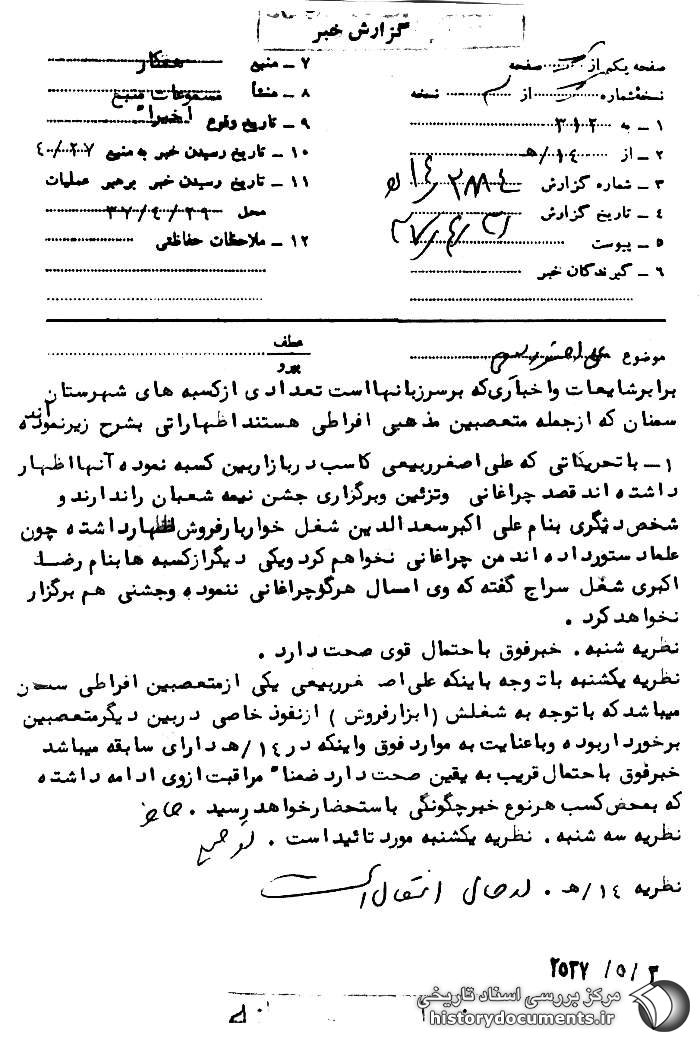 گزارش خبر
صفحه یکم از صفحه
نسخه شماره از نسخه
۱ ـ به ۳۱۲
۲ ـ از ۱۴/هـ
۳ ـ شماره گزارش
۴ ـ تاریخ گزارش ۳۷/۴/۳۱
۵ ـ پیوست
۶ ـ گیرندگان خبر
۷ ـ منبع همکار
۸ ـ منشأ مسموعات منبع
۹ ـ تاریخ وقوع اخیرا"
۱۰ ـ تاریخ رسیدن خبر به منبع ۴۰/۰۲۷
۱۱ ـ تاریخ رسیدن خبر برهبر عملیات
محل ۳۷/۴/۲۹
۱۲ ـ ملاحظات حفاظتی
موضوع علی اصغر ربیعی
عطف
پیرو
برابر شایعات و اخباری که بر سر زبانها است تعدادی از کسبه های شهرستان
سمنان که از جمله متعصبین مذهبی افراطی هستند اظهاراتی بشرح زیر نموده اند
۱ ـ با تحریکاتی که علی اصغر ربیعی کاسب در بازار بین کسبه نموده آنها اظهار
داشته اند قصد چراغانی وتزئین وبرگزاری جشن نیمه شعبان را ندارند و
شخص دیگری بنام علی اکبر سعدالدین شغل خواربار فروش اظهار داشته چون
علماء دستور داده اند من چراغانی نخواهم کرد ویکی دیگر از کسبه ها بنام رضا
اکبری شغل سراج گفته که وی امسال هرگز چراغانی ننموده وجشنی هم برگزار
نخواهد کرد .
نظریه شنبه . خبر فوق با حتمال قوی صحت دارد .
نظریه یکشنبه با توجه باینکه علی اصغر ربیعی یکی از متعصبین افراطی سمنان
میباشد که با توجه به شغلش (ابزار فروش) از نفوذ خاصی در بین دیگر متعصبین
برخوردار بوده وبا عنایت به موارد فوق واینکه در ۱۴/هـ دارای سابقه میباشد
خبر فوق با حتمال قریب به یقین صحت دارد ضمنا" مراقبت از وی ادامه داشته
که بمحض کسب هر نوع خبر چگونگی با ستحضار خواهد رسید .
نظریه سه شنبه . نظریه یکشنبه مورد تائید است .
نظریه ۱۴/هـ . در حال انتقال است
۲۵۳۷/۵/۳
مرکز بررسی اسناد تاریخی
historydocuments.ir